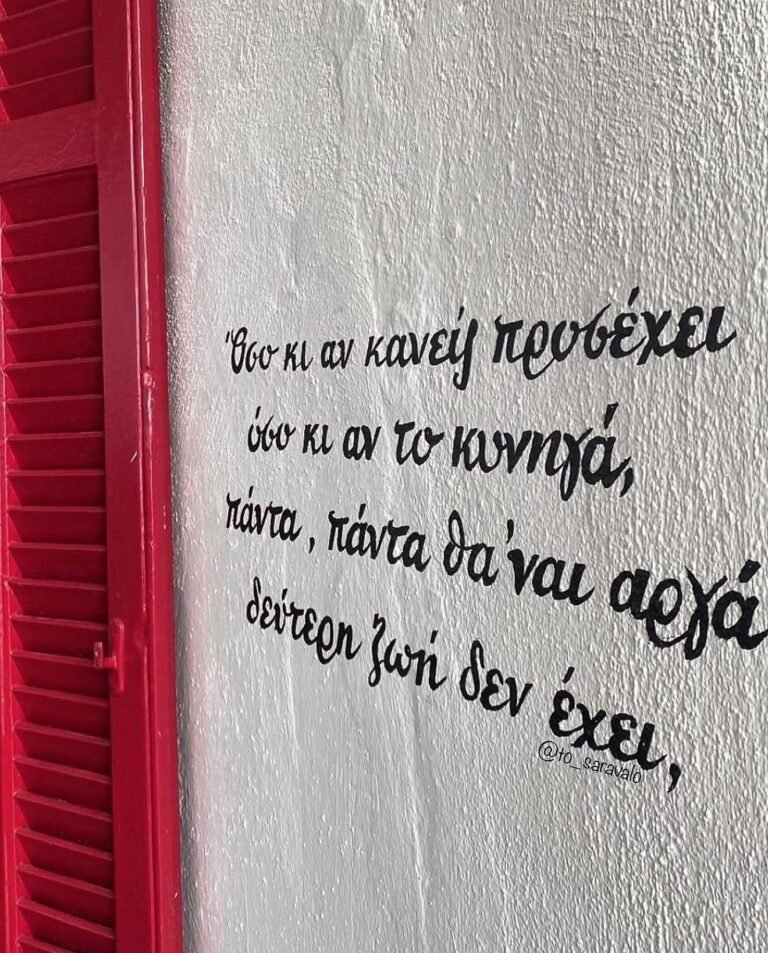 Όσο κι αν κανείς προσέχει
όσο κι αν το κυνηγά,
πάντα, πάντα θα 'ναι αργά
δεύτερη ζωή δεν έχει,
@to_saravalo